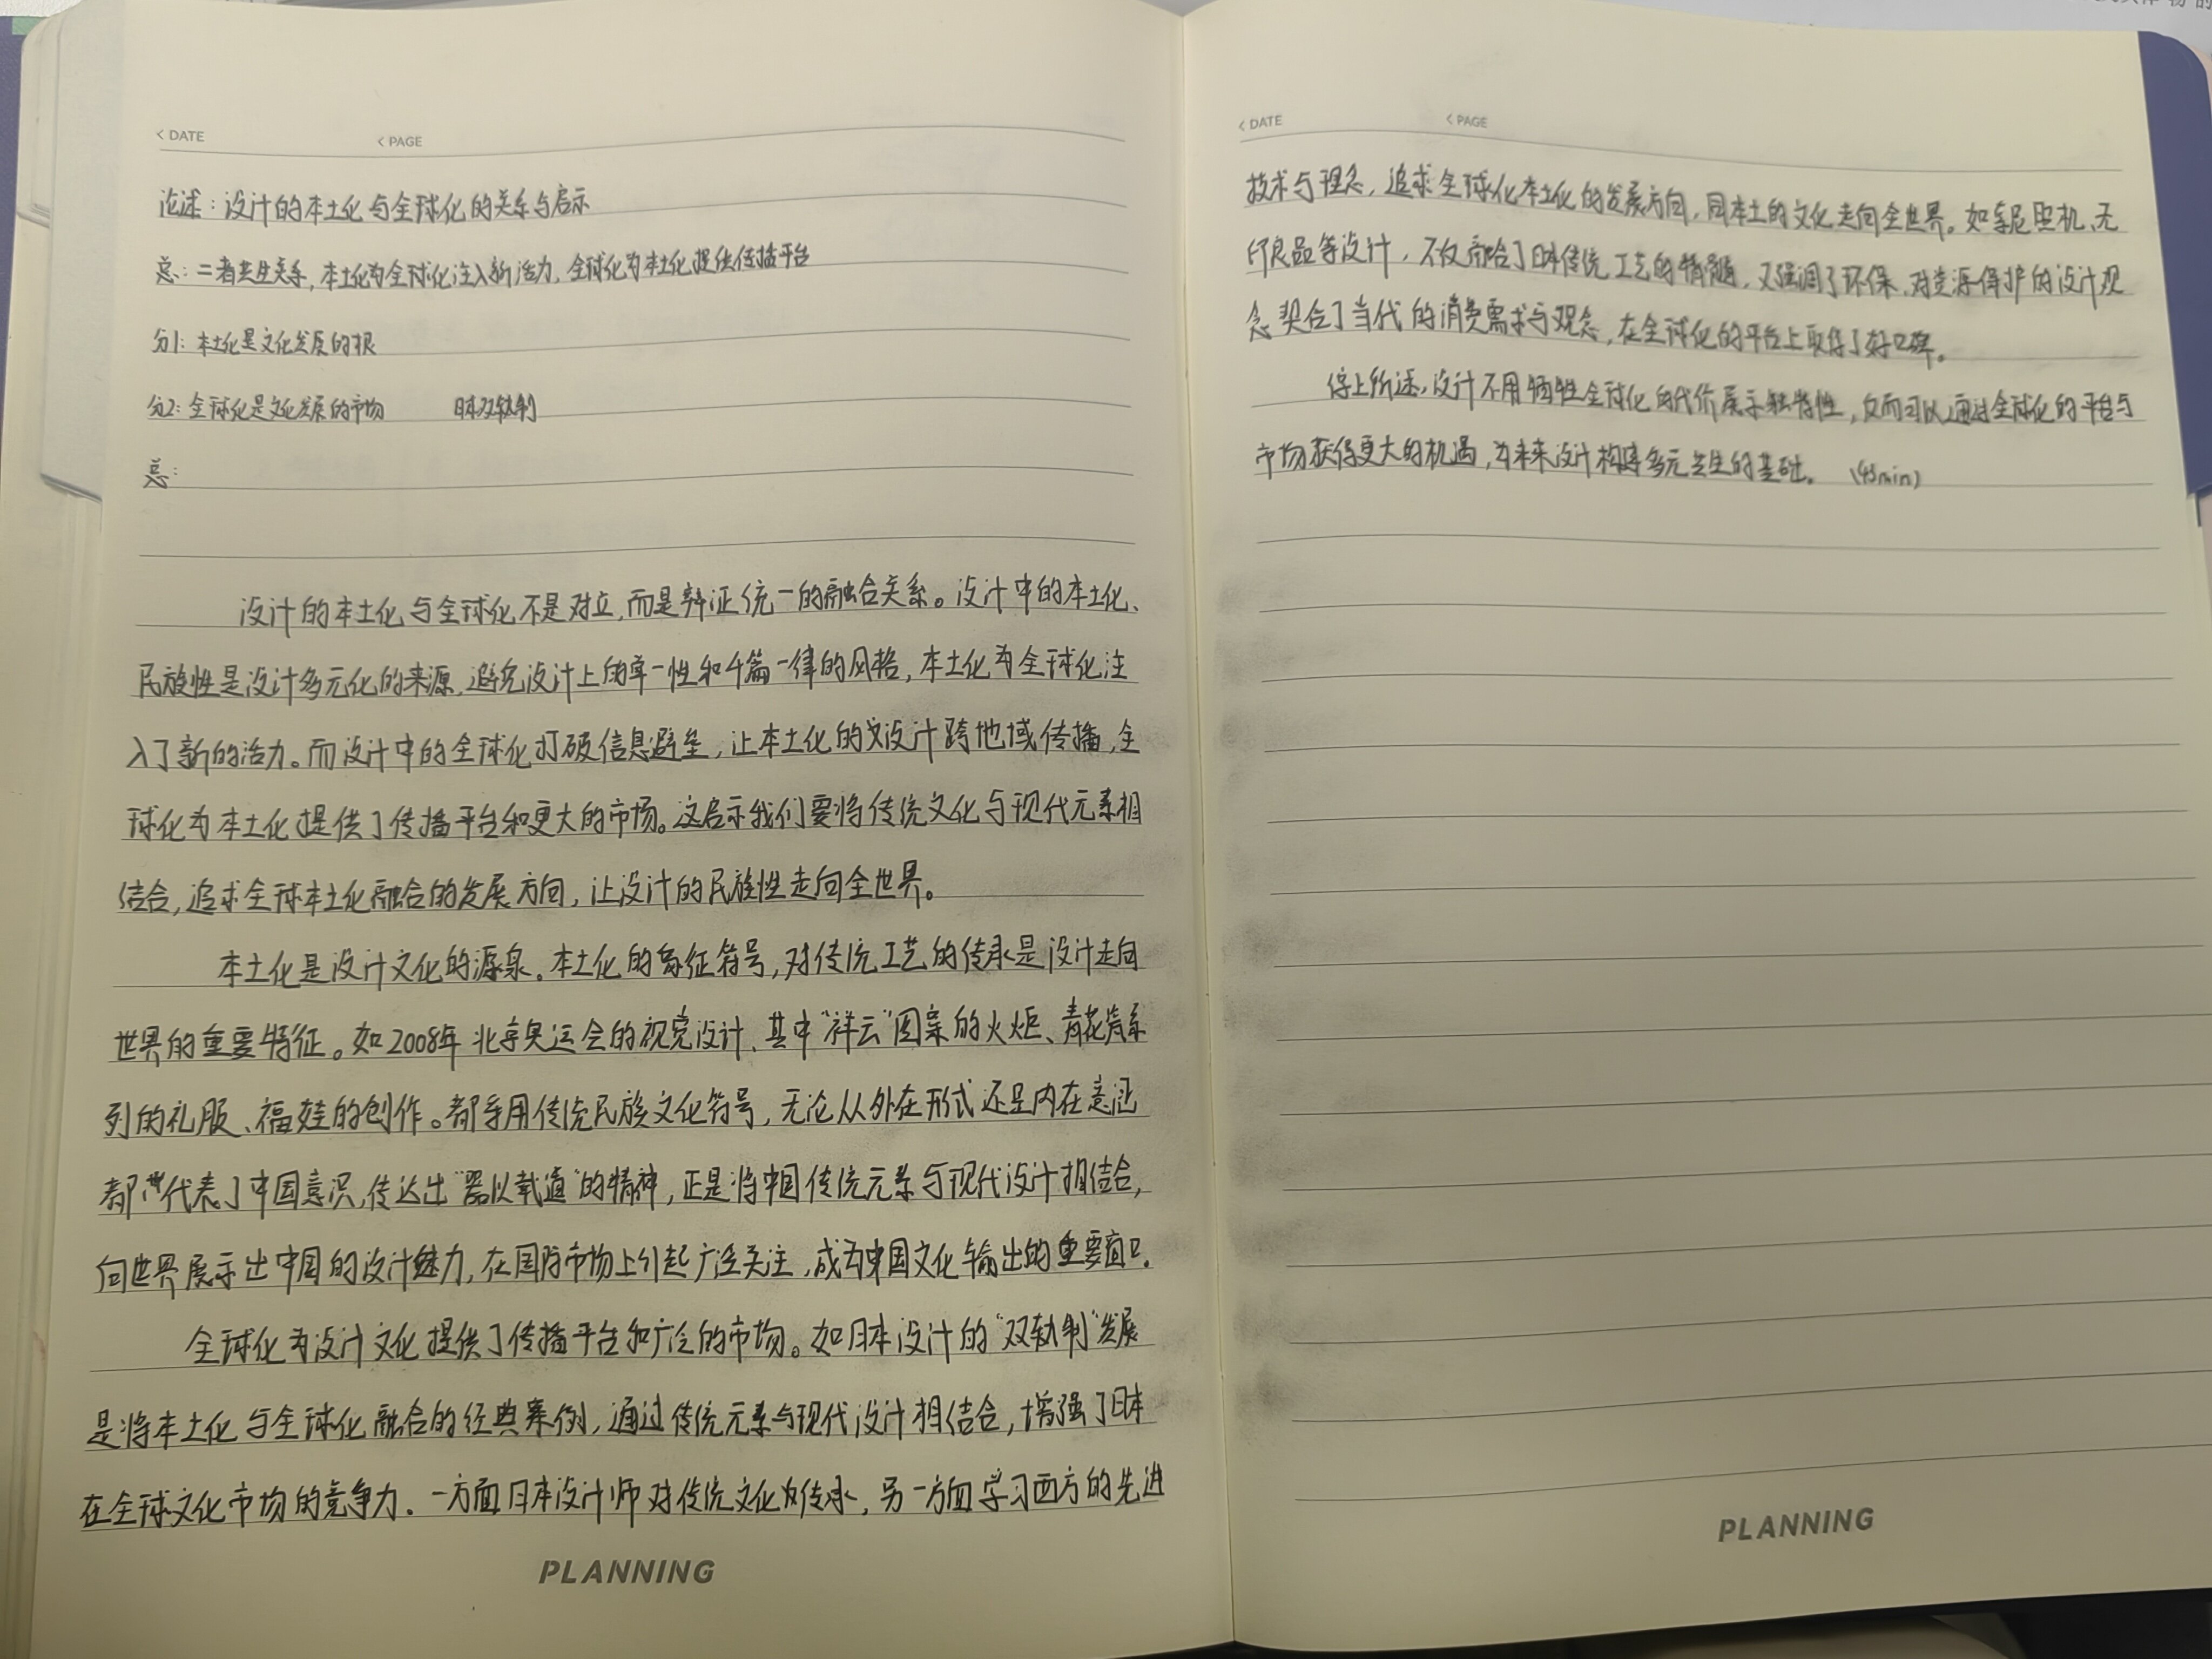 < DATE
< PAGE
论述：设计的本土化与全球化的关系与启示
总：二者共生关系，本土化为全球化注入新活力，全球化为本土化提供传播平台
分1：本土化是文化发展的根
分2：全球化是文化发展的市场 日本双轨制
总：
设计的本土化与全球化不是对立，而是辩证统一的融合关系。设计中的本土化、
民族性是设计多元化的来源，避免设计上的单一性和千篇一律的风格，本土化为全球化注
入了新的活力。而设计中的全球化打破信息避垒，让本土化的设计跨地域传播，全
球化为本土化提供了传播平台和更大的市场。这启示我们要将传统文化与现代元素相
结合，追求全球本土化融合的发展方向，让设计的民族性走向全世界。
本土化是设计文化的源泉。本土化的象征符号，对传统工艺的传承是设计走向
世界的重要特征。如2008年北京奥运会的视觉设计、其中“祥云”图案的火炬、青花瓷系
列的礼服、福娃的创作。都采用传统民族文化符号，无论从外在形式还是内在意涵
都代表了中国意识，传达出“器以载道”的精神，正是将中国传统元素与现代设计相结合，
向世界展示出中国的设计魅力，在国际市场上引起广泛关注，成为中国文化输出的重要窗口。
全球化为设计文化提供了传播平台和广泛的市场。如日本设计的“双轨制”发展
是将本土化与全球化融合的经典案例，通过传统元素与现代设计相结合，增强了日本
在全球文化市场的竞争力。一方面日本设计师对传统文化的传承，另一方面学习西方的先进
PLANNING
< DATE
< PAGE
技术与理念，追求全球化本土化的发展方向，同本土的文化走向全世界。如索尼照机、无
印良品等设计，不仅融合了日本传统工艺的精髓，又强调了环保、对资源保护的设计观
念契合了当代的消费需求与观念，在全球化的平台上取得了好口碑。
综上所述，设计不用牺牲全球化的代价展示独特性，反而可以通过全球化的平台与
市场获得更大的机遇，为未来设计构建多元共生的基础。 (43min)
PLANNING